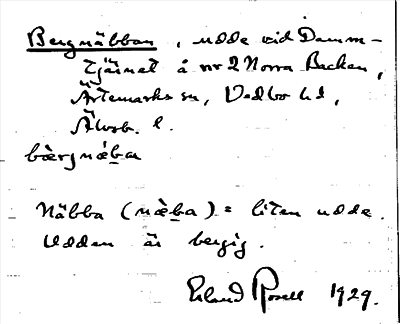 Bergnäbban, udde vid Damm-
tjärnet å nr 2 Norra Backen,
Ärtemarks sn, Vedbo hd,
Älvsb. l.
bærjnæ̀ba
Näbba (næ̀ba) = liten udde.
Udden är bergig.
Erland Rosell 1929.